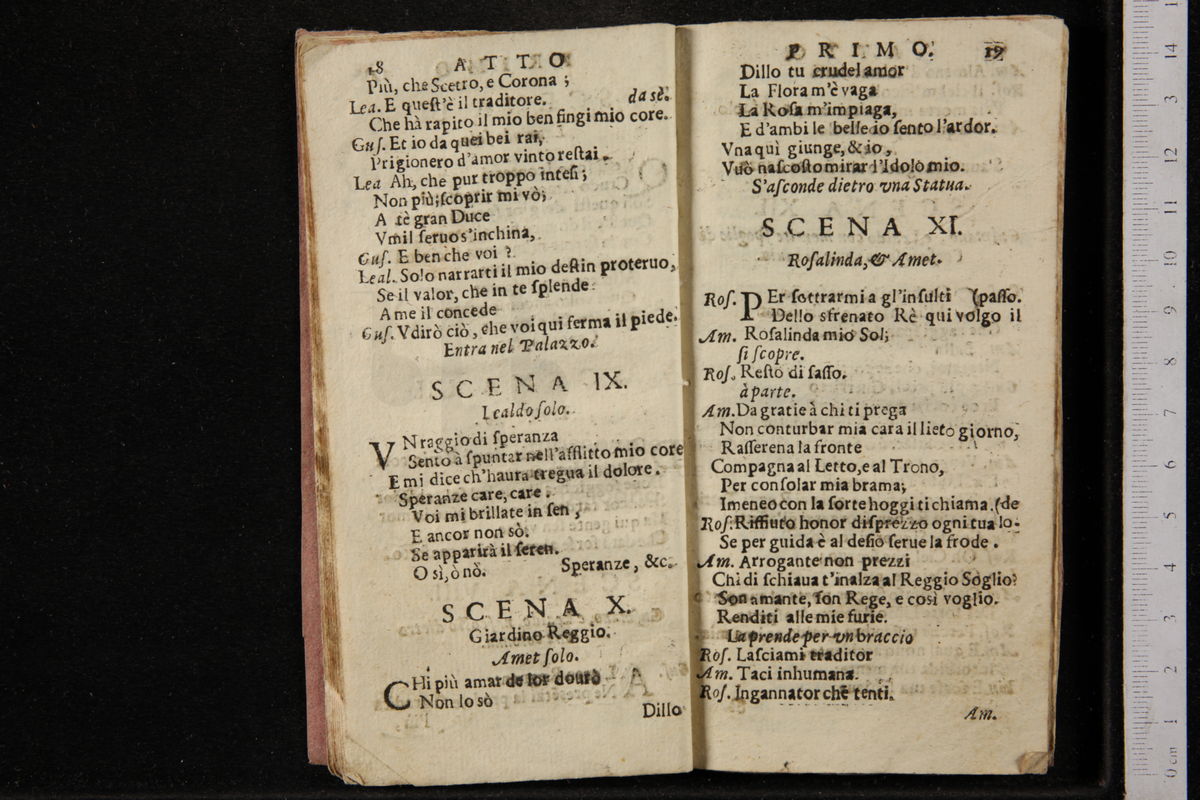 18 ATTO
Più, che Scetro, e Corona ;
Lea. E quest'è il traditore. da sè.
Che hà rapito il mio ben fingi mio core.
Gus. Et io da quei bei rai,
Prigionero d'amor vinto restai.
Lea Ah, che pur troppo intesi ;
Non più; scoprir mi vò;
A tè gran Duce
Vmil seruo s'inchina,
Gus. E ben che voi ?
Leal. Solo narrarti il mio destin proteruo,
Se il valor, che in te splende
A me il concede
Gus. Vdirò ciò, che voi qui ferma il piede.
Entra nel Palazzo.
SCENA IX.
Lealdo solo.
VN raggio di speranza
Sento à spuntar nell'afflitto mio core
E mi dice ch'haura tregua il dolore.
Speranze care, care.
Voi mi brillate in sen,
E ancor non sò.
Se apparirà il seren.
O sì, ò nò. Speranze, &c.
SCENA X.
Giardino Reggio.
Amet solo.
CHi più amar de lor dourò
Non lo sò
Dillo
PRIMO. 19
Dillo tu crudel amor
La Flora m'è vaga
La Rosa m'impiaga,
E d'ambi le belle io sento l'ardor.
Vna quì giunge, & io,
Vuò nascosto mirar l'Idolo mio.
S'asconde dietro vna Statua.
SCENA XI.
Rosalinda, & Amet.
Ros. PEr sottrarmi a gl'insulti (passo.
Dello sfrenato Rè qui volgo il
Am. Rosalinda mio Sol;
si scopre.
Ros. Resto di sasso.
à parte.
Am. Da gratie à chi ti prega
Non conturbar mia cara il lieto giorno,
Rasserena la fronte
Compagna al Letto, e al Trono,
Per consolar mia brama;
Imeneo con la sorte hoggi ti chiama. (de
Ros. Riffiuto honor disprezzo ogni tua lo-
Se per guida è al desio serue la frode.
Am. Arrogante non prezzi
Chi di schiaua t'inalza al Reggio Soglio?
Son amante, son Rege, e così voglio.
Renditi alle mie furie.
La prende per vn braccio
Ros. Lasciami traditor
Am. Taci inhumana.
Ros. Ingannator che tenti.
Am.
0 cm 1 2 3 4 5 6 7 8 9 10 11 12 13 14